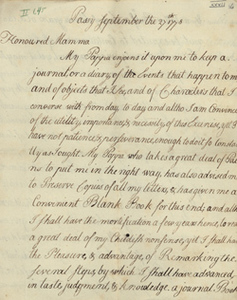 Passy September the 27th 1778
Honoured Mamma
My Pappa enjoins it upon me to keep a
journal or a diary, of the Events that happen to me
and of objects that I See, and of Characters that I
converse with from day, to day, and altho I am Convinced
of the utility, importance, & necessity, of this Exercise, yet I
have not patience, & perseverance, enough to do it so Constant
ly as I ought. My Pappa who takes a great deal of Pains
to put me in the right way, has also advised me
to Preserve Copies of all my letters, & has given me a
Convenient Blank Book for this end; and altho
I shall have the mortification a few years hence, to read
a great deal of my Childish nonsense, yet I shall have
the Pleasure, & advantage, of Remarking the
several steps, by which I shall have advanced,
in taste, judgment, & knowledge. a journal